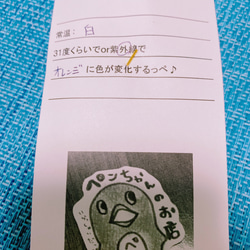 常温: 白
31度くらいでor紫外線で
オレンジに色が変化するっぺ♪
ペンちゃんのお店
ペ